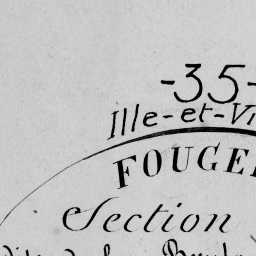 -35-
Ille-et-Vi
FOUGE
Section